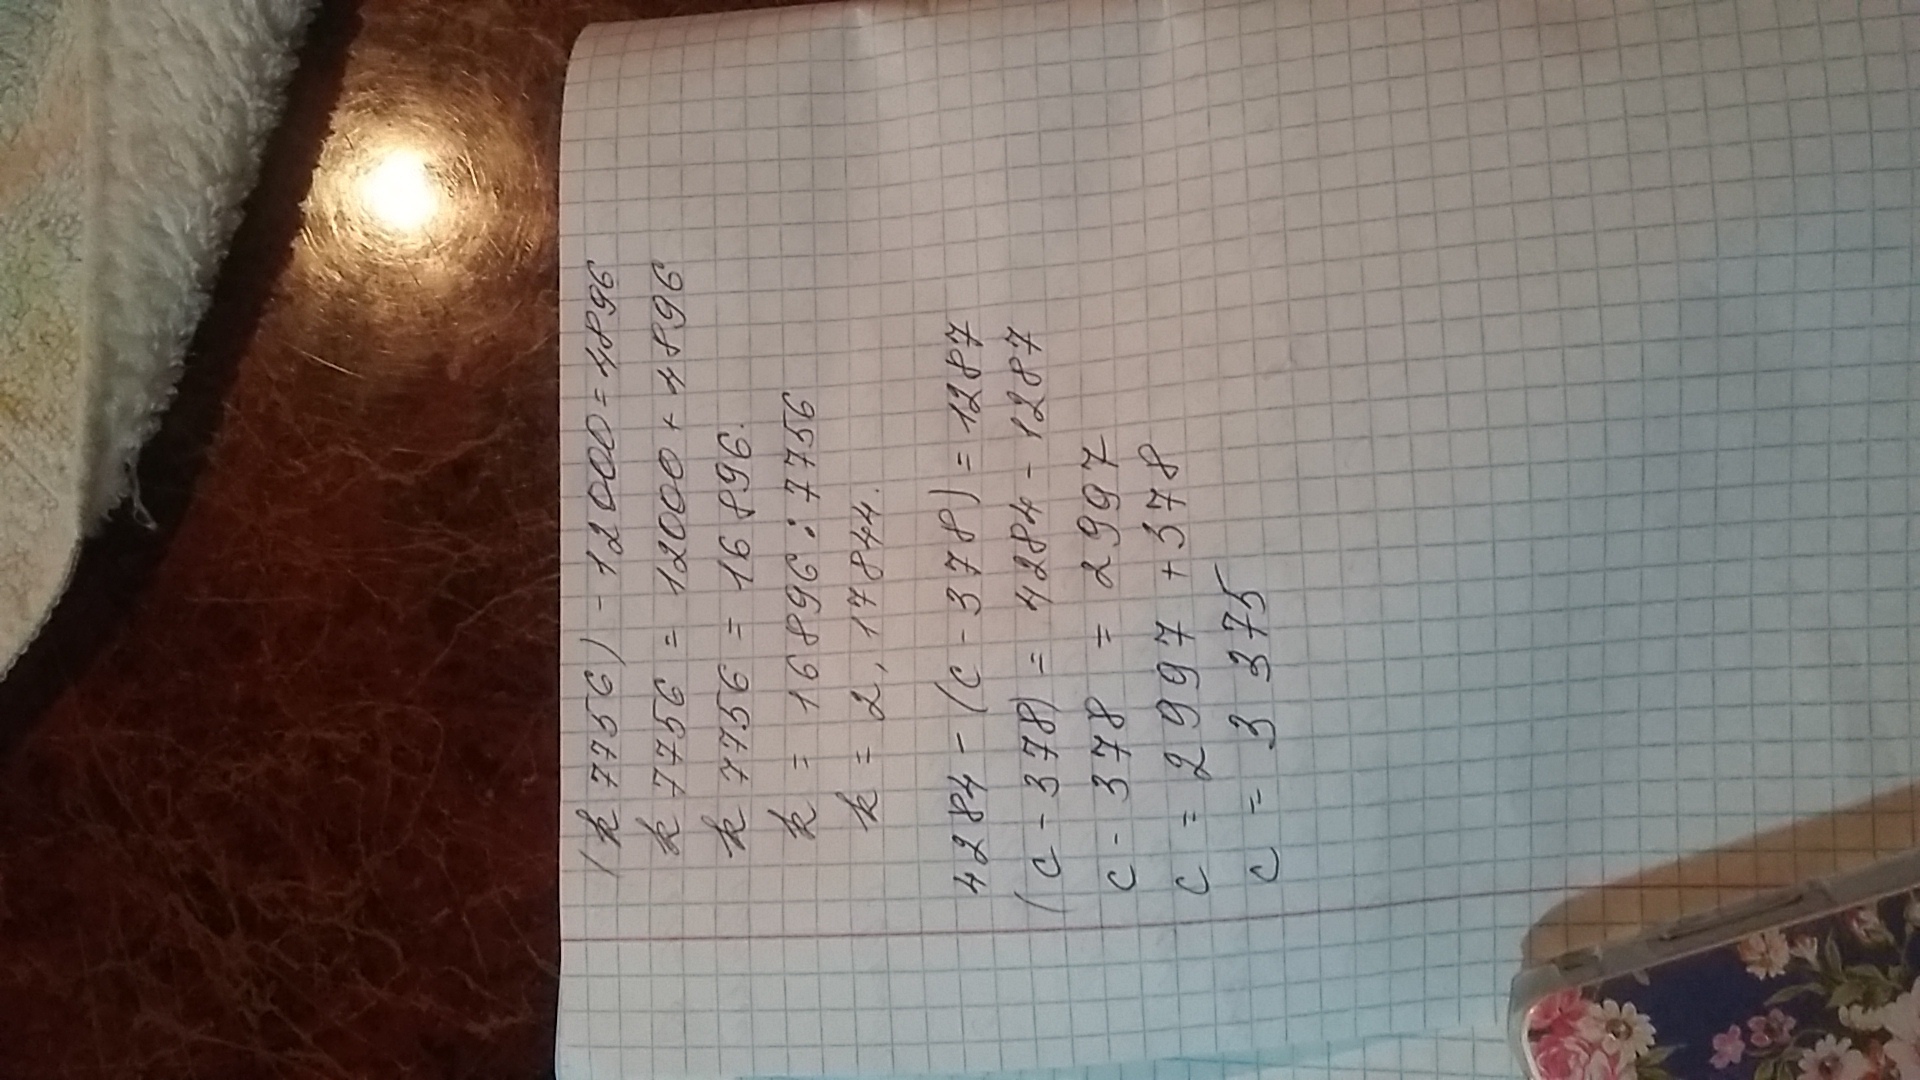 (k 7756) - 12000 = 4896
k 7756 = 12000 + 4896
k 7756 = 16 896.
k = 16 896 : 7756
k = 2,17844.
4284 - (c - 378) = 1287
(c - 378) = 4284 - 1287
c - 378 = 2997
c = 2997 + 378
c = 3 375